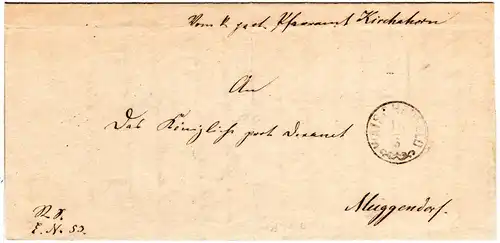 Vom k. prot. Pfarramt Kirchahorn
An
Das Königliche prot Decanat
Muggendorf.
R. S.
E. N. 53.